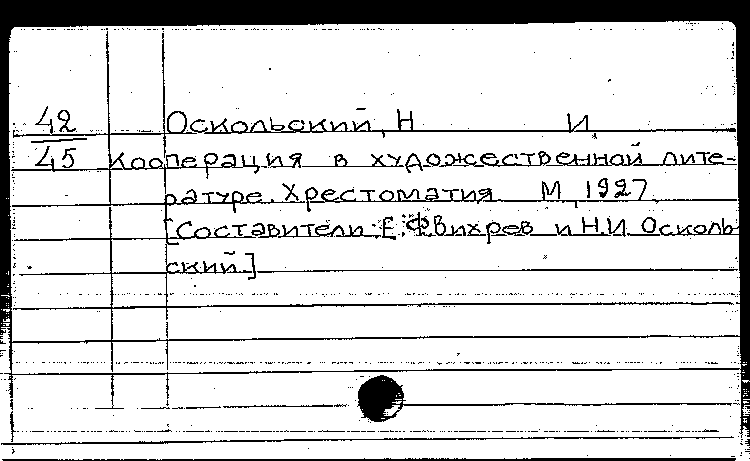 42 Оскольский, Н И.
45 Кооперация в художественной лите-
ратуре. Хрестоматия М, 1927.
[Составители: Е.Ф.Вихрев и Н.И. Осколь
ский.]